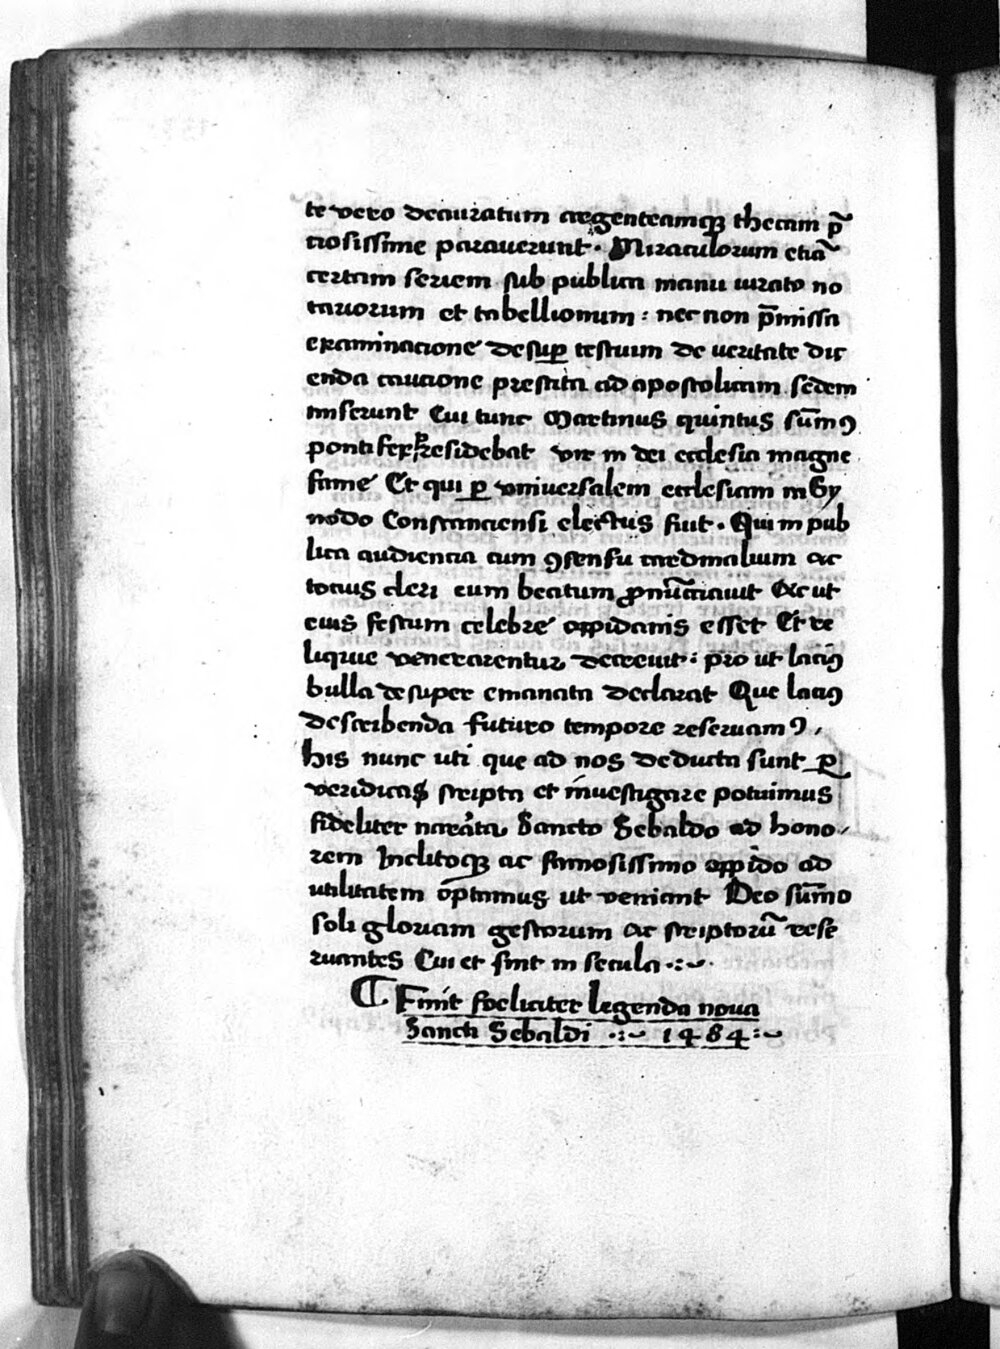 te vero deauratum argenteamqꝫ thecam p̄
ciosissime parauerunt · Miraculorum etiā
certam seriem sub publica manu iurato no
tariorum et tabellionum : nec non p̄missa
examinacione desuꝑ testium de veritate dic
enda caucione prestita ad apostolicam sedem
miserunt Cui tunc Martinus quintus sūmꝯ
pontifex residebat vir in dei ecclesia magne
fame Et qui ꝑ vniuersalem ecclesiam in Sy
nodo Constanciensi electus fuit · Qui in pub
lica audiencia cum ꝯsensu cardinalium ac
tocius cleri eum beatum ꝓnūciauit Ac ut
eius festum celebre oppidanis esset Et re
liquie venerarentur decreuit : pro ut laciꝯ
bulla desuper emanata declarat Que laciꝯ
describenda futuro tempore reseruamꝯ ,
his nunc uti que ad nos deducta sunt ꝑ
veridicas scripta et inuestigare potuimus
fideliter narata Sancto Sebaldo ad hono
rem Inclitoqꝫ ac famosissimo oppido ad
utilitatem optamus ut veniant Deo sūmo
soli gloriam gestorum ac scriptorū rese
ruantes Cui et sint in secula ·:~·
¶ Finit foeliciter legenda noua
Sancti Sebaldi ·:~ 1484 :~